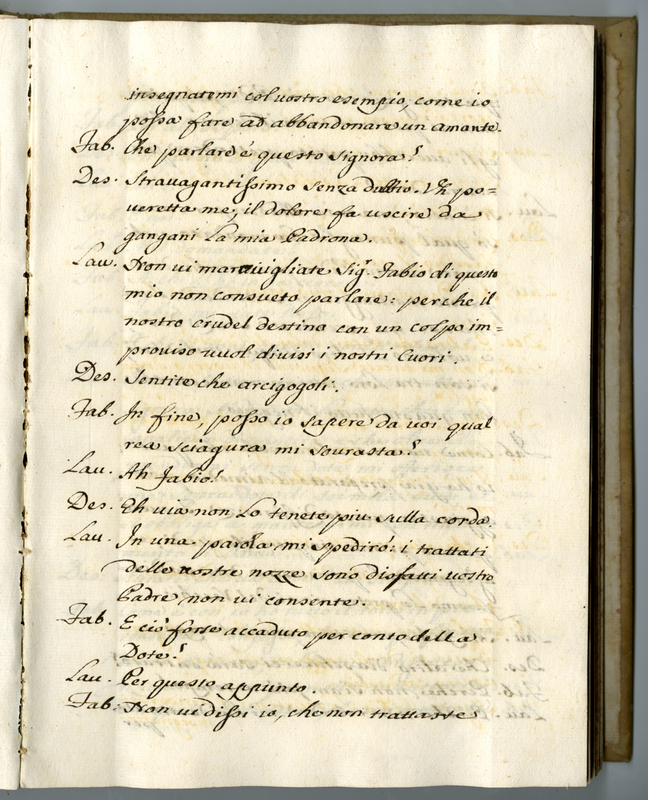 insegnatemi col vostro esempio, come io
possa fare ad abbandonare un amante.
Fab. Che parlare è questo Signora?
Des. Stravagantissimo senza dubbio. Eh po=
veretta me, il dolore fa uscire da
gangani La mia Padrona.
Lau. Non vi maravigliate Sig.r Fabio di questo
mio non consueto parlare: perche il
nostro crudel destino con un colpo im=
proviso vuol divisi i nostri Cuori.
Des. Sentite che arcigogoli.
Fab. In fine, posso io sapere da voi qual
rea sciagura mi sovrasta?
Lau. Ah Fabio!
Des. Eh via non Lo tenete piu sulla corda.
Lau. In una parola mi spedirò: i trattati
delle nostre nozze sono disfatti vostro
Padre non vi consente.
Fab. E ciò forse accaduto per conto della
Dote?
Lau. Per questo appunto.
Fab: Non vi dissi io, che non trattaste